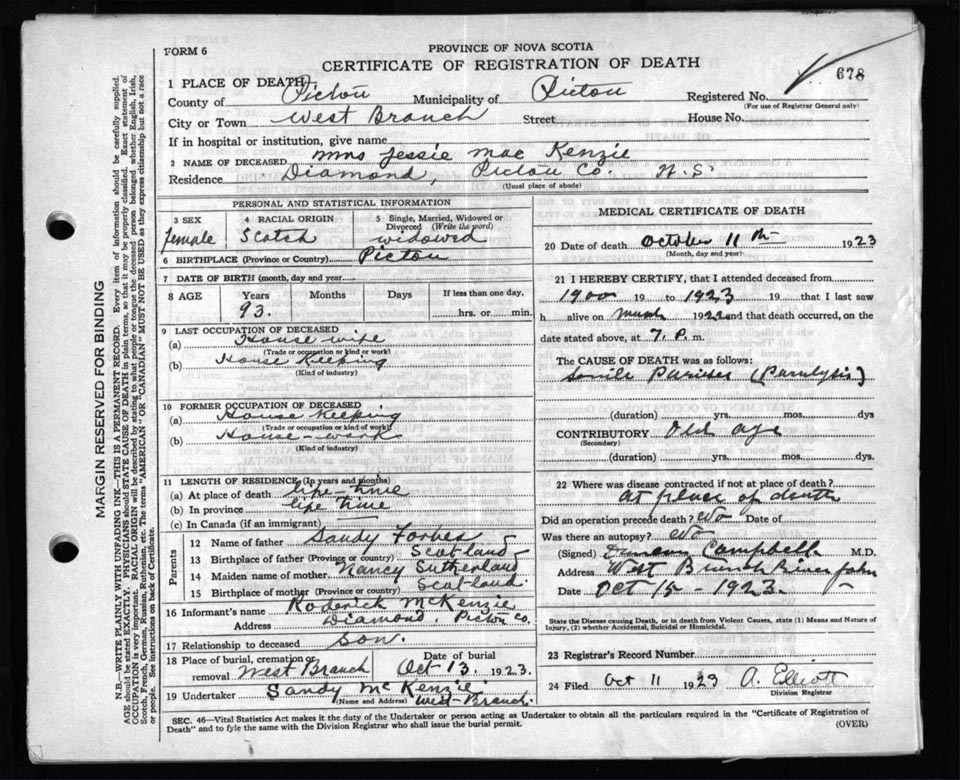 FORM 6
PROVINCE OF NOVA SCOTIA
CERTIFICATE OF REGISTRATION OF DEATH
678
1 PLACE OF DEATH
County of Pictou Municipality of Pictou Registered No.
(For use of Registrar General only)
City or Town West Branch Street House No.
If in hospital or institution, give name
2 NAME OF DECEASED Mrs Jessie Mac Kenzie
Residence Diamond, Pictou Co. N.S
(Usual place of abode)
PERSONAL AND STATISTICAL INFORMATION
3 SEX 4 RACIAL ORIGIN 5 Single, Married, Widowed or Divorced (Write the word)
female Scotch widowed
6 BIRTHPLACE (Province or Country) Pictou
7 DATE OF BIRTH (month, day and year)
8 AGE Years Months Days If less than one day,
93. hrs. or min.
9 LAST OCCUPATION OF DECEASED
(a) House wife
(Trade or occupation or kind or work)
(b) House Keeping
(Kind of industry)
10 FORMER OCCUPATION OF DECEASED
(a) House Keeping
(Trade or occupation or kind of work)
(b) House-work
(Kind of industry)
11 LENGTH OF RESIDENCE (In years and months)
(a) At place of death life-time
(b) In province life time
(c) In Canada (if an immigrant)
Parents
12 Name of father Sandy Forbes
13 Birthplace of father (Province or country) Scotland
14 Maiden name of mother Nancy Sutherland
15 Birthplace of mother (Province or country) Scotland
16 Informant's name Roderick McKenzie
Address Diamond, Pictou Co.
17 Relationship to deceased Son.
18 Place of burial, cremation or removal West Branch Date of burial Oct 13. 1923.
19 Undertaker Sandy McKenzie.
(Name and Address) West-Branch
MEDICAL CERTIFICATE OF DEATH
20 Date of death October 11th 1923
(Month, day and year)
21 I HEREBY CERTIFY, that I attended deceased from
1900 19 to 1923 19 that I last saw
h alive on 1922 and that death occurred, on the
date stated above, at 7. P. m.
The CAUSE OF DEATH was as follows:
Senile (Paralysis)
(duration) yrs. mos. dys
CONTRIBUTORY Old age
(Secondary)
(duration) yrs. mos. dys.
22 Where was disease contracted if not at place of death?
At place of death
Did an operation precede death? No Date of
Was there an autopsy? No
(Signed) Duncan Campbell M.D.
Address West Branch River John
Date Oct 15-1923.
State the Disease causing Death, or in death from Violent Causes, state (1) Means and Nature of Injury, (2) whether Accidental, Suicidal or Homicidal.
23 Registrar's Record Number
24 Filed Oct 11 1923 A. Elliott
Division Registrar
SEC. 46—Vital Statistics Act makes it the duty of the Undertaker or person acting as Undertaker to obtain all the particulars required in the "Certificate of Registration of
Death" and to fyle the same with the Division Registrar who shall issue the burial permit.
(OVER)
MARGIN RESERVED FOR BINDING
N.B.—WRITE PLAINLY WITH UNFADING INK—THIS IS A PERMANENT RECORD. Every item of information should be carefully supplied.
AGE should be stated EXACTLY. PHYSICIANS should STATE CAUSE OF DEATH in plain terms, so that it may be properly classified. Exact statement of
OCCUPATION is very important. RACIAL ORIGIN will be described by stating to what people or tongue the deceased person belonged whether English, Irish,
Scotch, French, German, Russian, Ruthenian, etc. The terms "AMERICAN" or "CANADIAN" MUST NOT BE USED as they express citizenship but not a race
or people. See instructions on back of Certificate.